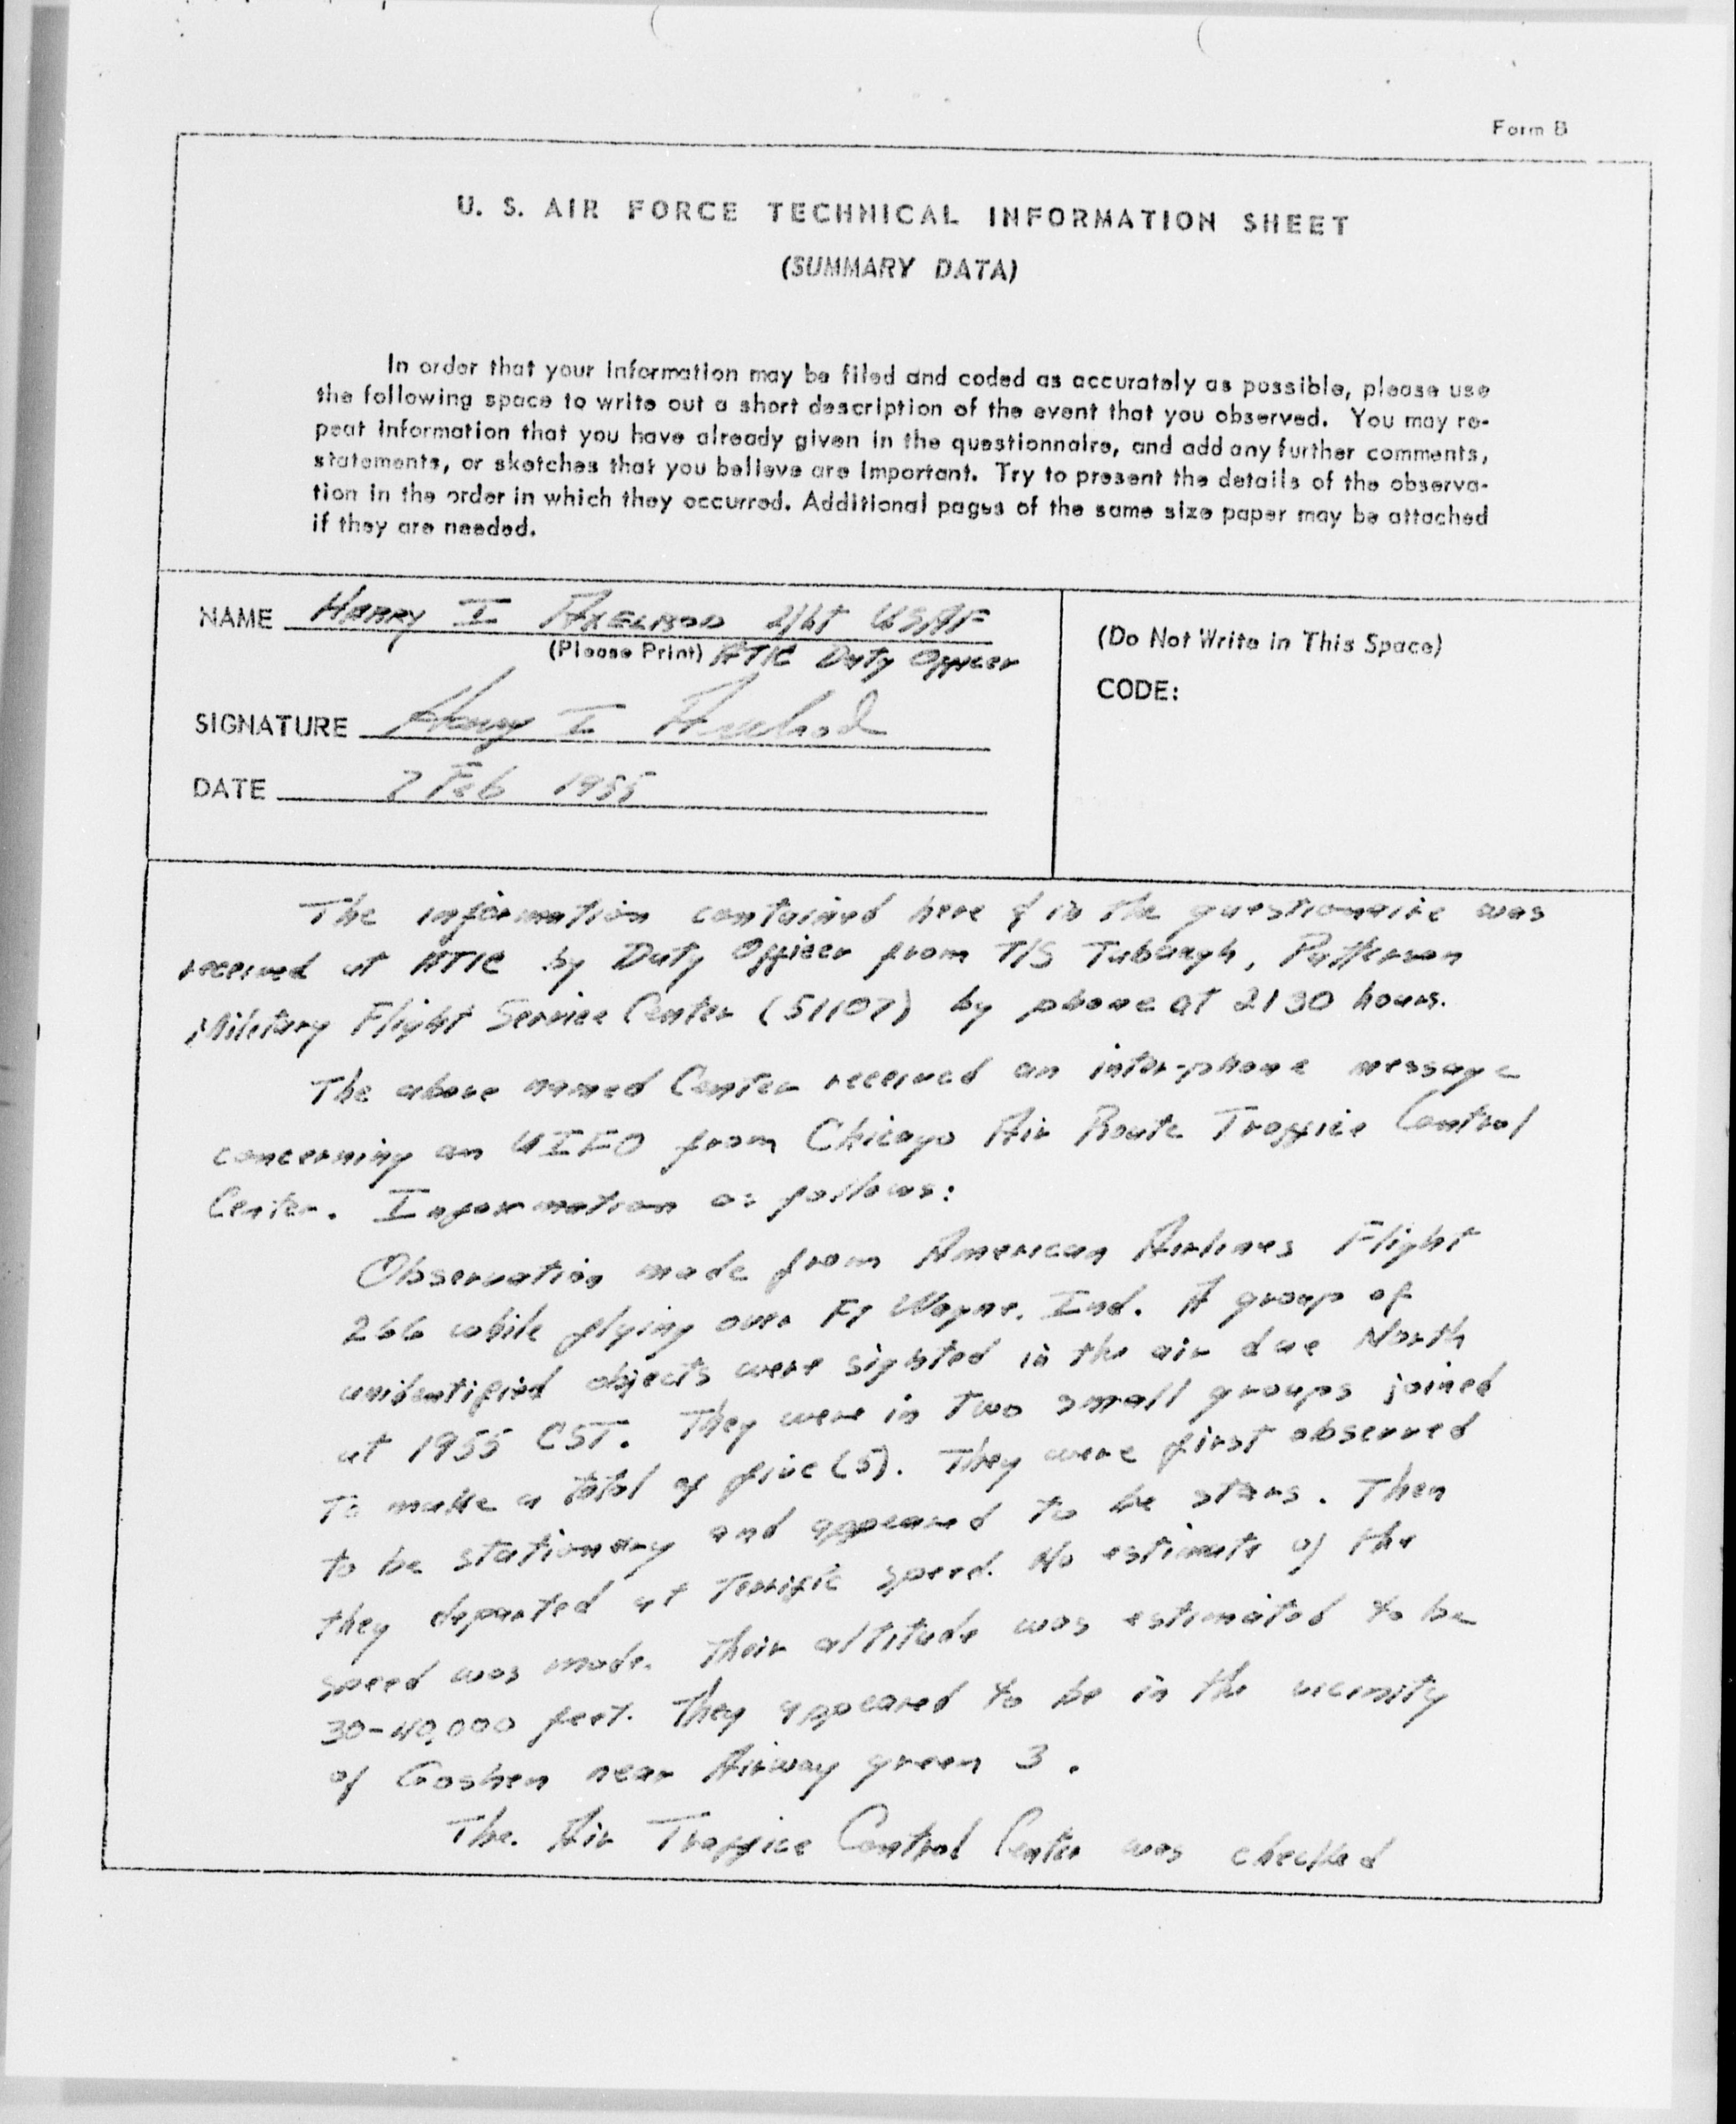 Form B
U. S. AIR FORCE TECHNICAL INFORMATION SHEET
(SUMMARY DATA)
In order that your information may be filed and coded as accurately as possible, please use
the following space to write out a short description of the event that you observed. You may re-
peat information that you have already given in the questionnaire, and add any further comments,
statements, or sketches that you believe are important. Try to present the details of the observa-
tion in the order in which they occurred. Additional pages of the same size paper may be attached
if they are needed.
NAME HARRY I AXELROD 2/Lt USAF
(Please Print) ATIC Duty Officer
SIGNATURE Harry I Axelrod
DATE 7 Feb 1955
(Do Not Write in This Space)
CODE:
The information contained here & in the questionaire was
received at ATIC by Duty Officer from T/S Tubaugh, Patterson
Military Flight Service Center (51107) by phone at 2130 hours.
The above named Center received an inter-phone message
concerning an UIFO from Chicago Air Route Traffice Control
Center. Information as follows:
Observation made from American Airlines Flight
266 while flying over Ft Wayne, Ind. A group of
unidentified objects were sighted in the air due North
at 1955 CST. They were in two small groups joined
to make a total of five (5). They were first observed
to be stationary and appeared to be stars. Then
they departed at terrific speed. No estimate of the
speed was made. Their altitude was estimated to be
30-40,000 feet. They appeared to be in the vicinity
of Goshen near Airway green 3.
The Air Traffice Control Center was checked